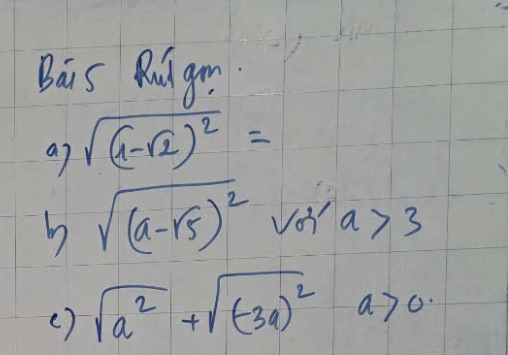 Bài 5 Rút gọn.
a) √(1-√2)² =
b) √(a-√5)² với a > 3
c) √a² + √(-3a)² a > 0.